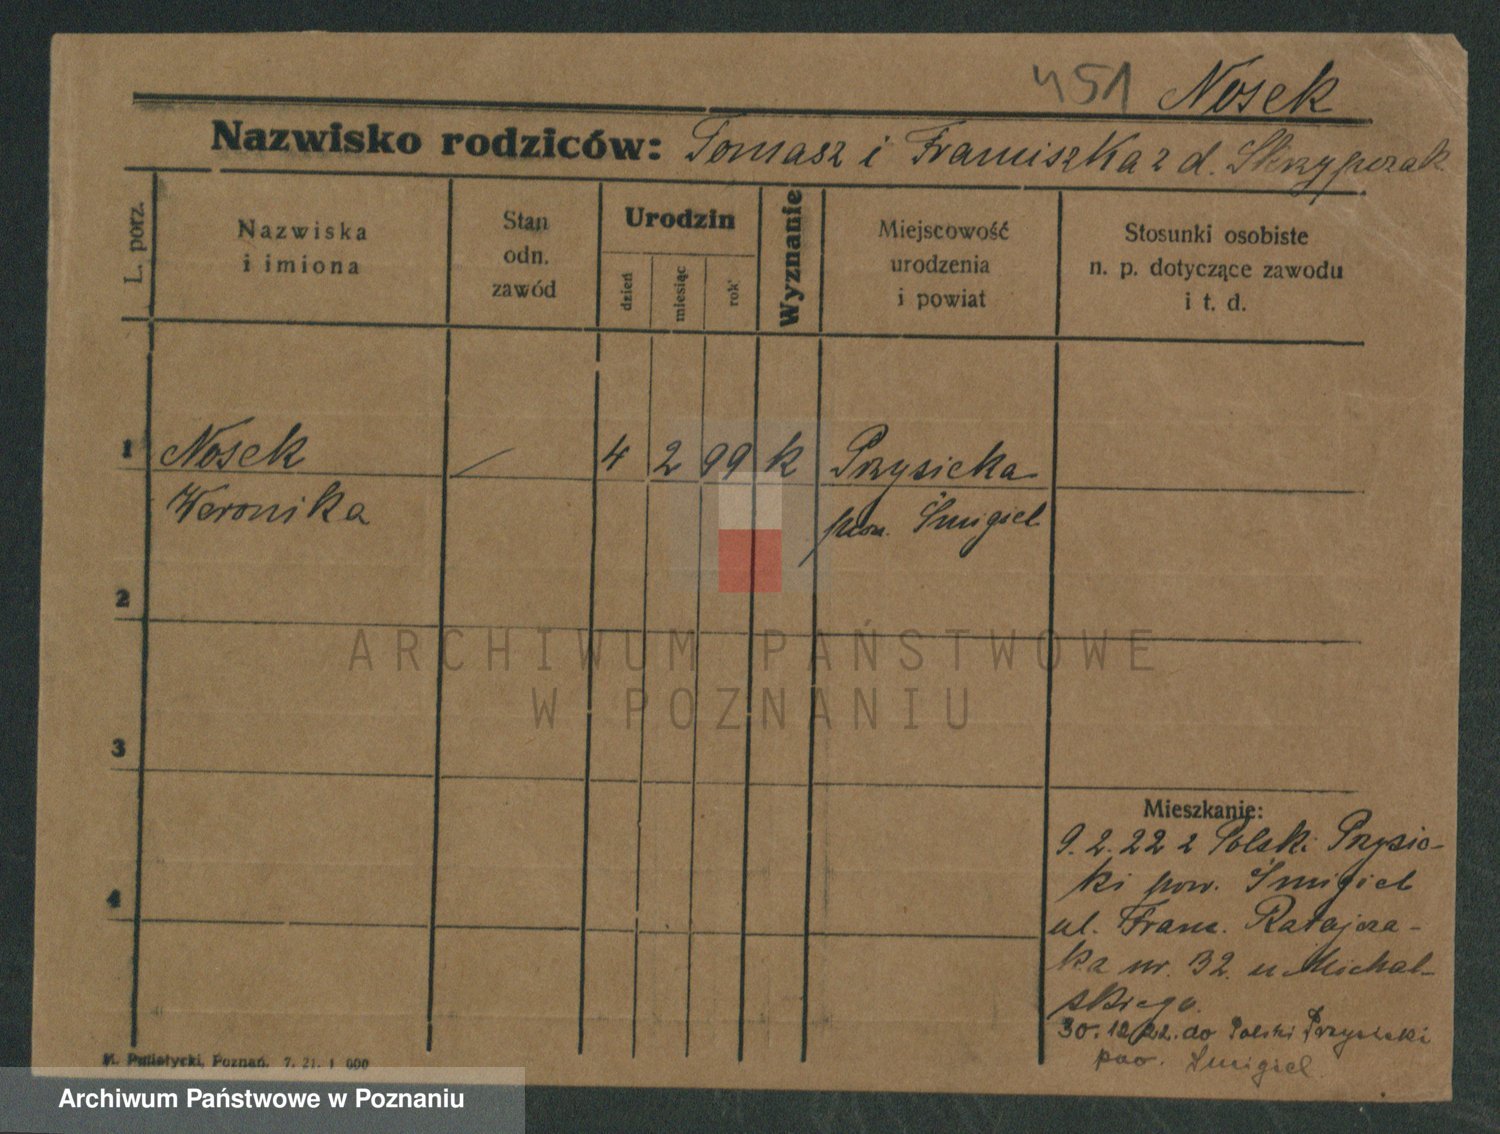 451 Nosek
Nazwisko rodziców: Tomasz i Franciszka z d. Skrzypczak
L. porz.
Nazwiska
i imiona
Stan
odn.
zawód
Urodzin
dzień
miesiąc
rok
Wyznanie
Miejscowość
urodzenia
i powiat
Stosunki osobiste
n. p. dotyczące zawodu
i t. d.
1 Nosek / 4 2 99 k Przysieka
Weronika pow. Śmigiel
2
3
4
ARCHIWUM PAŃSTWOWE
W POZNANIU
Mieszkanie:
9.2.22 z Polski Przysie-
ki pow. Śmigiel
ul. Franc. Ratajcza-
ka nr. 32. u Michal-
skiego.
30.12.22. do Polski Przysieki
pow. Śmigiel
M. Putiatycki, Poznań. 7. 21. 1 000
Archiwum Państwowe w Poznaniu